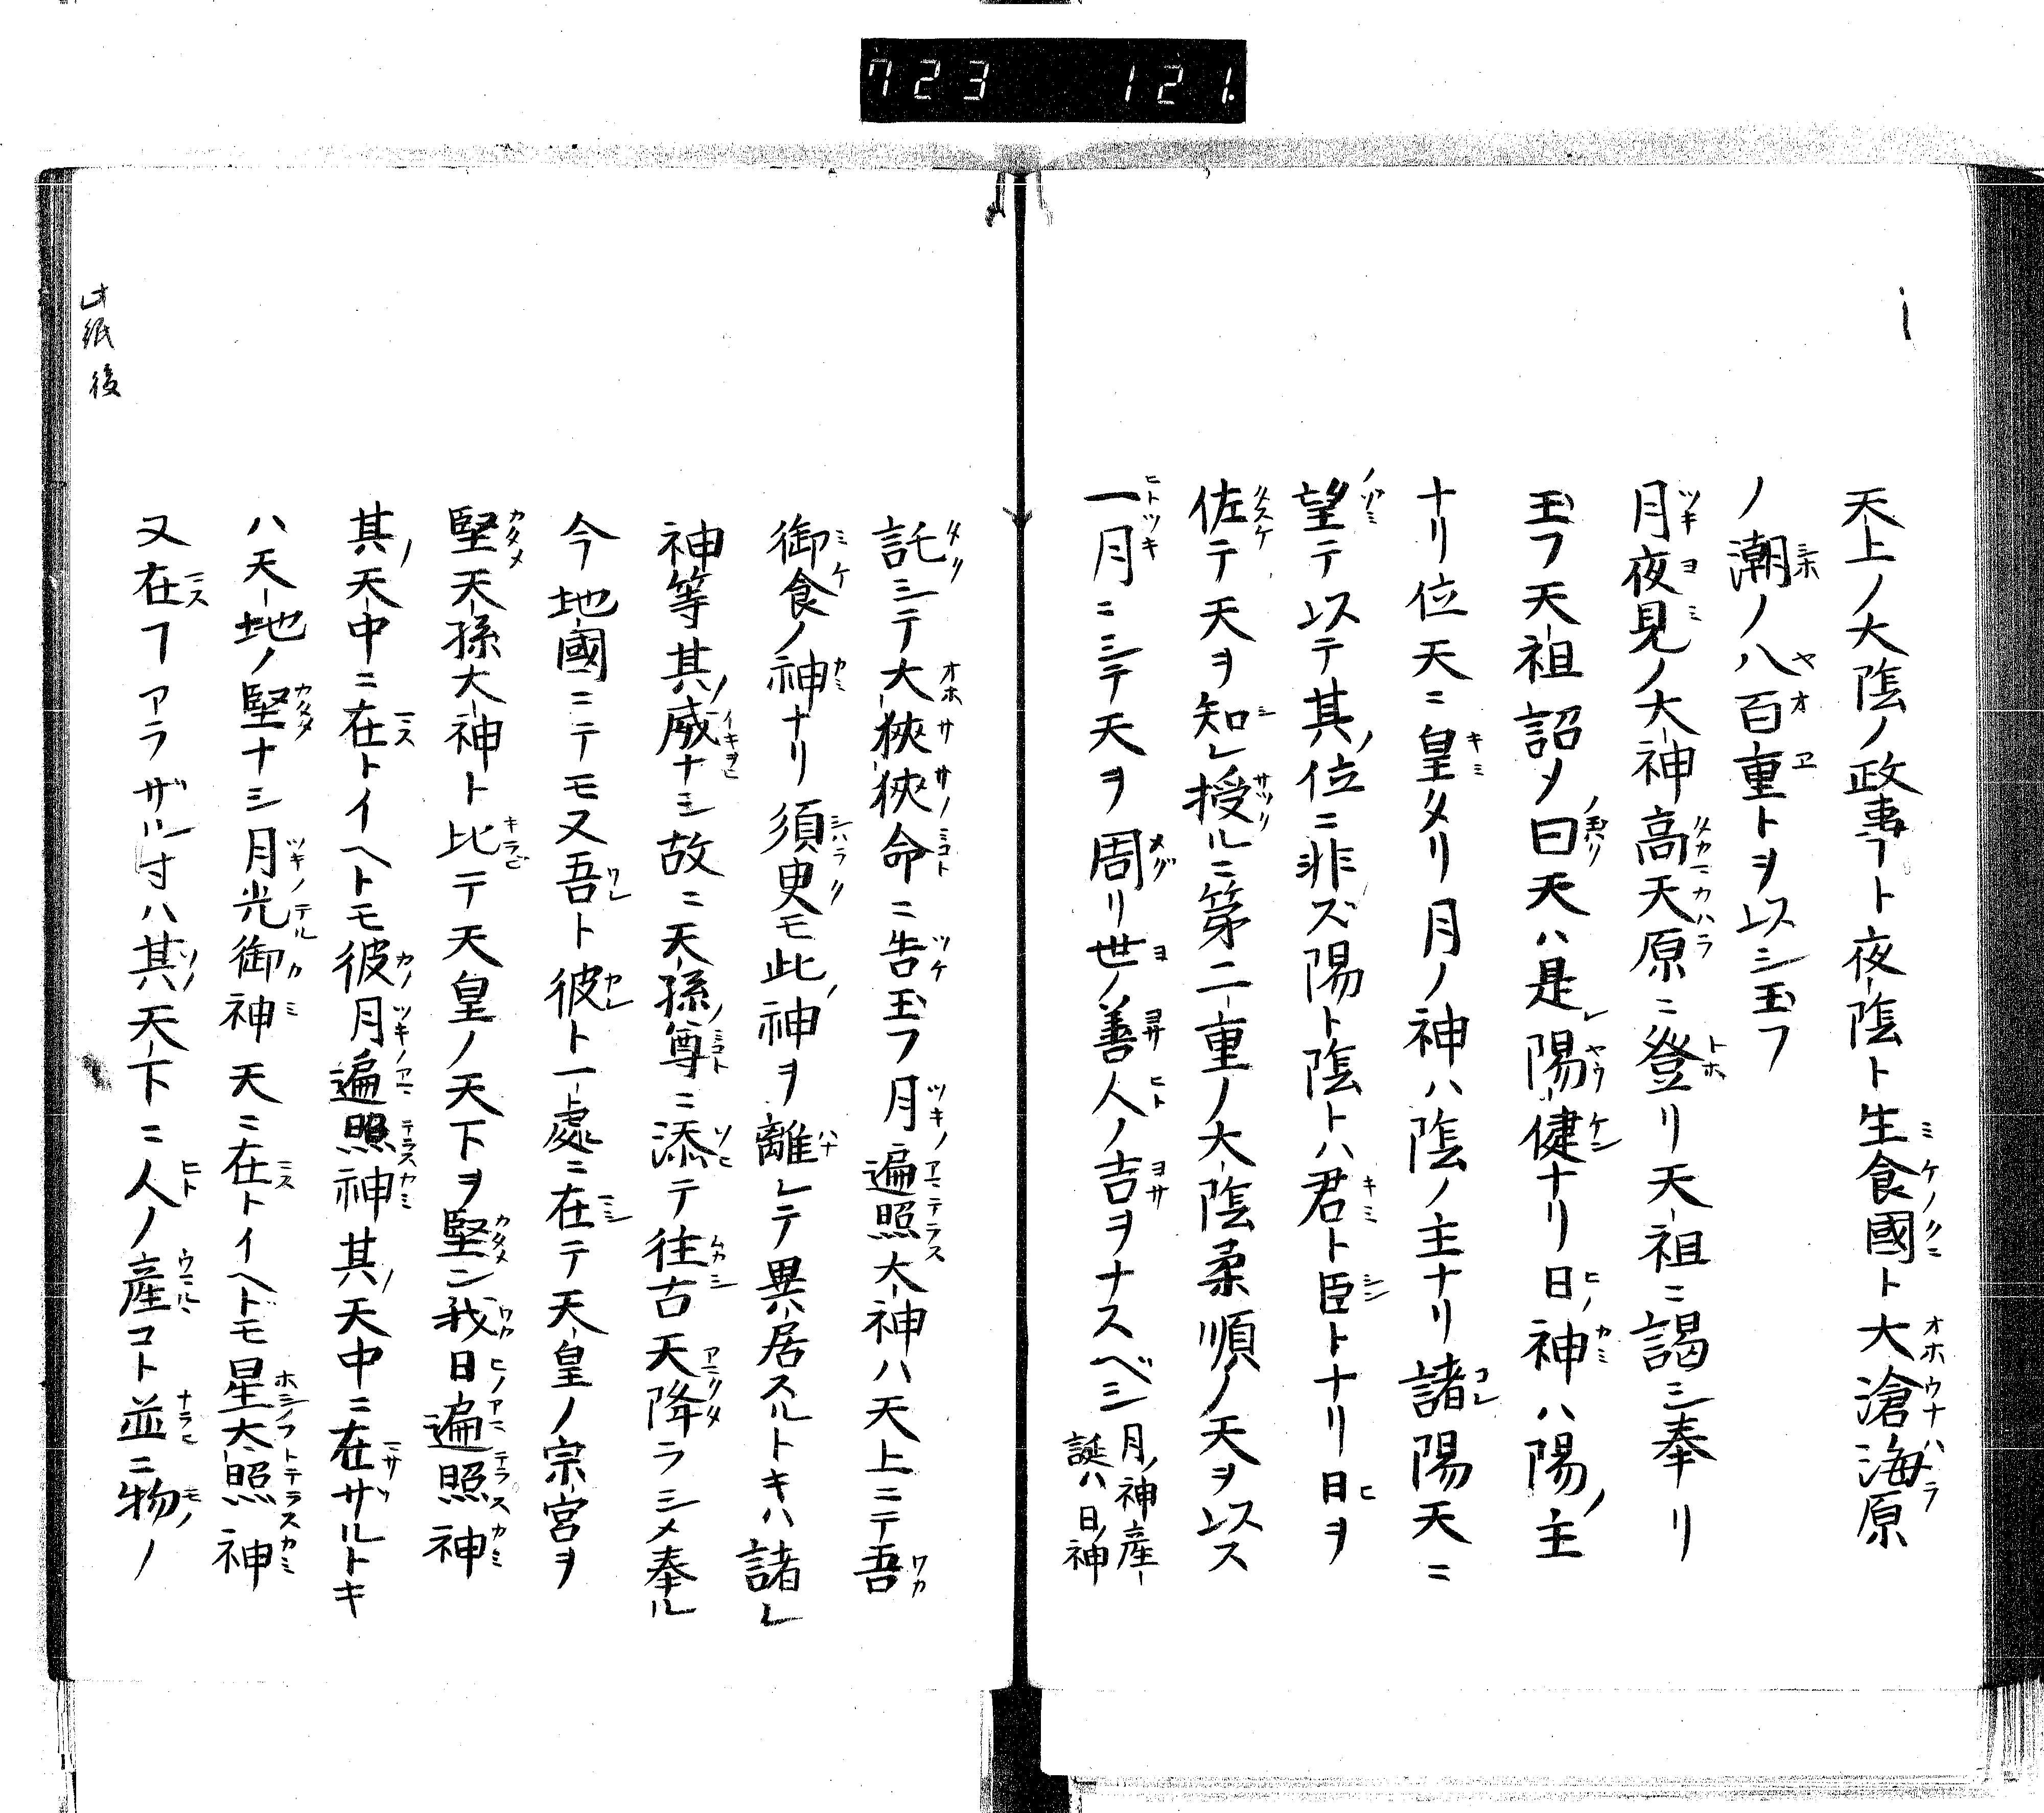 723 121
天上ノ大陰ノ政事ト夜陰ト生食國ト大滄海原
ノ潮ノ八百重トヲ以シ玉フ
月夜見ノ大神高天原ニ登リ天祖ニ謁シ奉リ
玉フ天祖詔メ曰天ハ是レ陽健ナリ日神ハ陽ノ主
ナリ位天ニ皇タリ月ノ神ハ陰ノ主ナリ諸陽天ニ
望テ以テ其ノ位ニ非ズ陽ト陰トハ君ト臣トナリ日ヲ
佐テ天ヲ知レ授ルニ第二重ノ大陰柔順ノ天ヲ以ス
一月ニシテ天ヲ周リ世ノ善人ノ吉ヲナスベシ月ノ神産
誕ハ日ノ神
託シテ大狹狹命ニ告玉フ月遍照大神ハ天上ニテ吾
御食ノ神ナリ須臾モ此ノ神ヲ離レテ異居スルトキハ諸
神等其ノ威ナシ故ニ天孫ノ尊ニ添テ往古天降ラシメ奉ル
今地國ニテモ又吾ト彼ト一處ニ在テ天皇ノ宗宮ヲ
堅天孫大神ト比テ天皇ノ天下ヲ堅ン我日遍照神
其ノ天中ニ在トイヘトモ彼月遍照神其ノ天中ニ在サルトキ
ハ天地ノ堅ナシ月光御神天ニ在トイヘドモ星大照神
又在ヿアラザル寸ハ其天下ニ人ノ産コト並ニ物ノ
此紙後